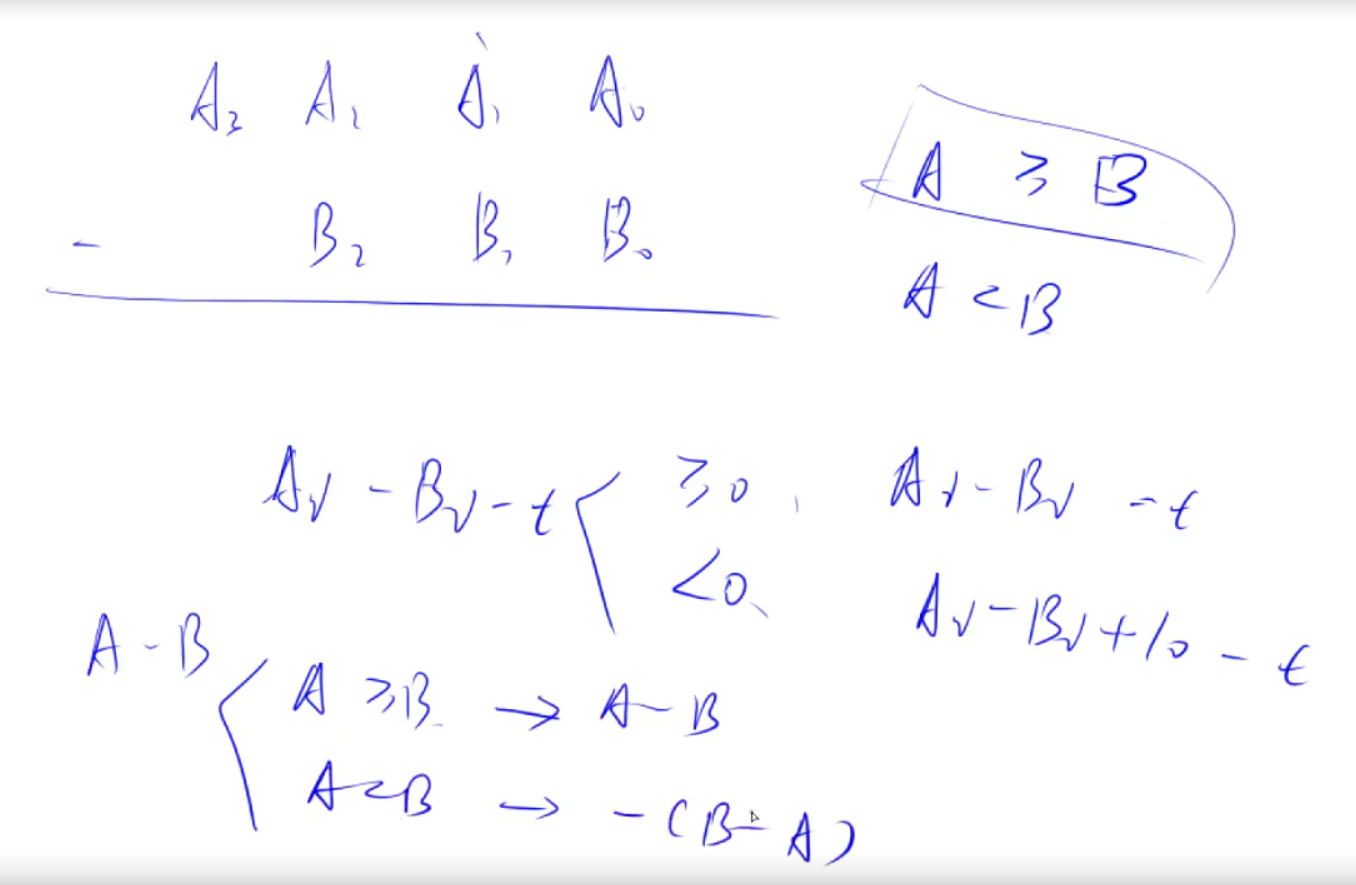 A₃ A₂ A₁ A₀
- B₂ B₁ B₀
A ≥ B
A < B
Aᵢ - Bᵢ - t { ≥0, Aᵢ - Bᵢ - t
<0, Aᵢ - Bᵢ + 10 - t
A - B { A ≥ B → A - B
A < B → -(B - A)